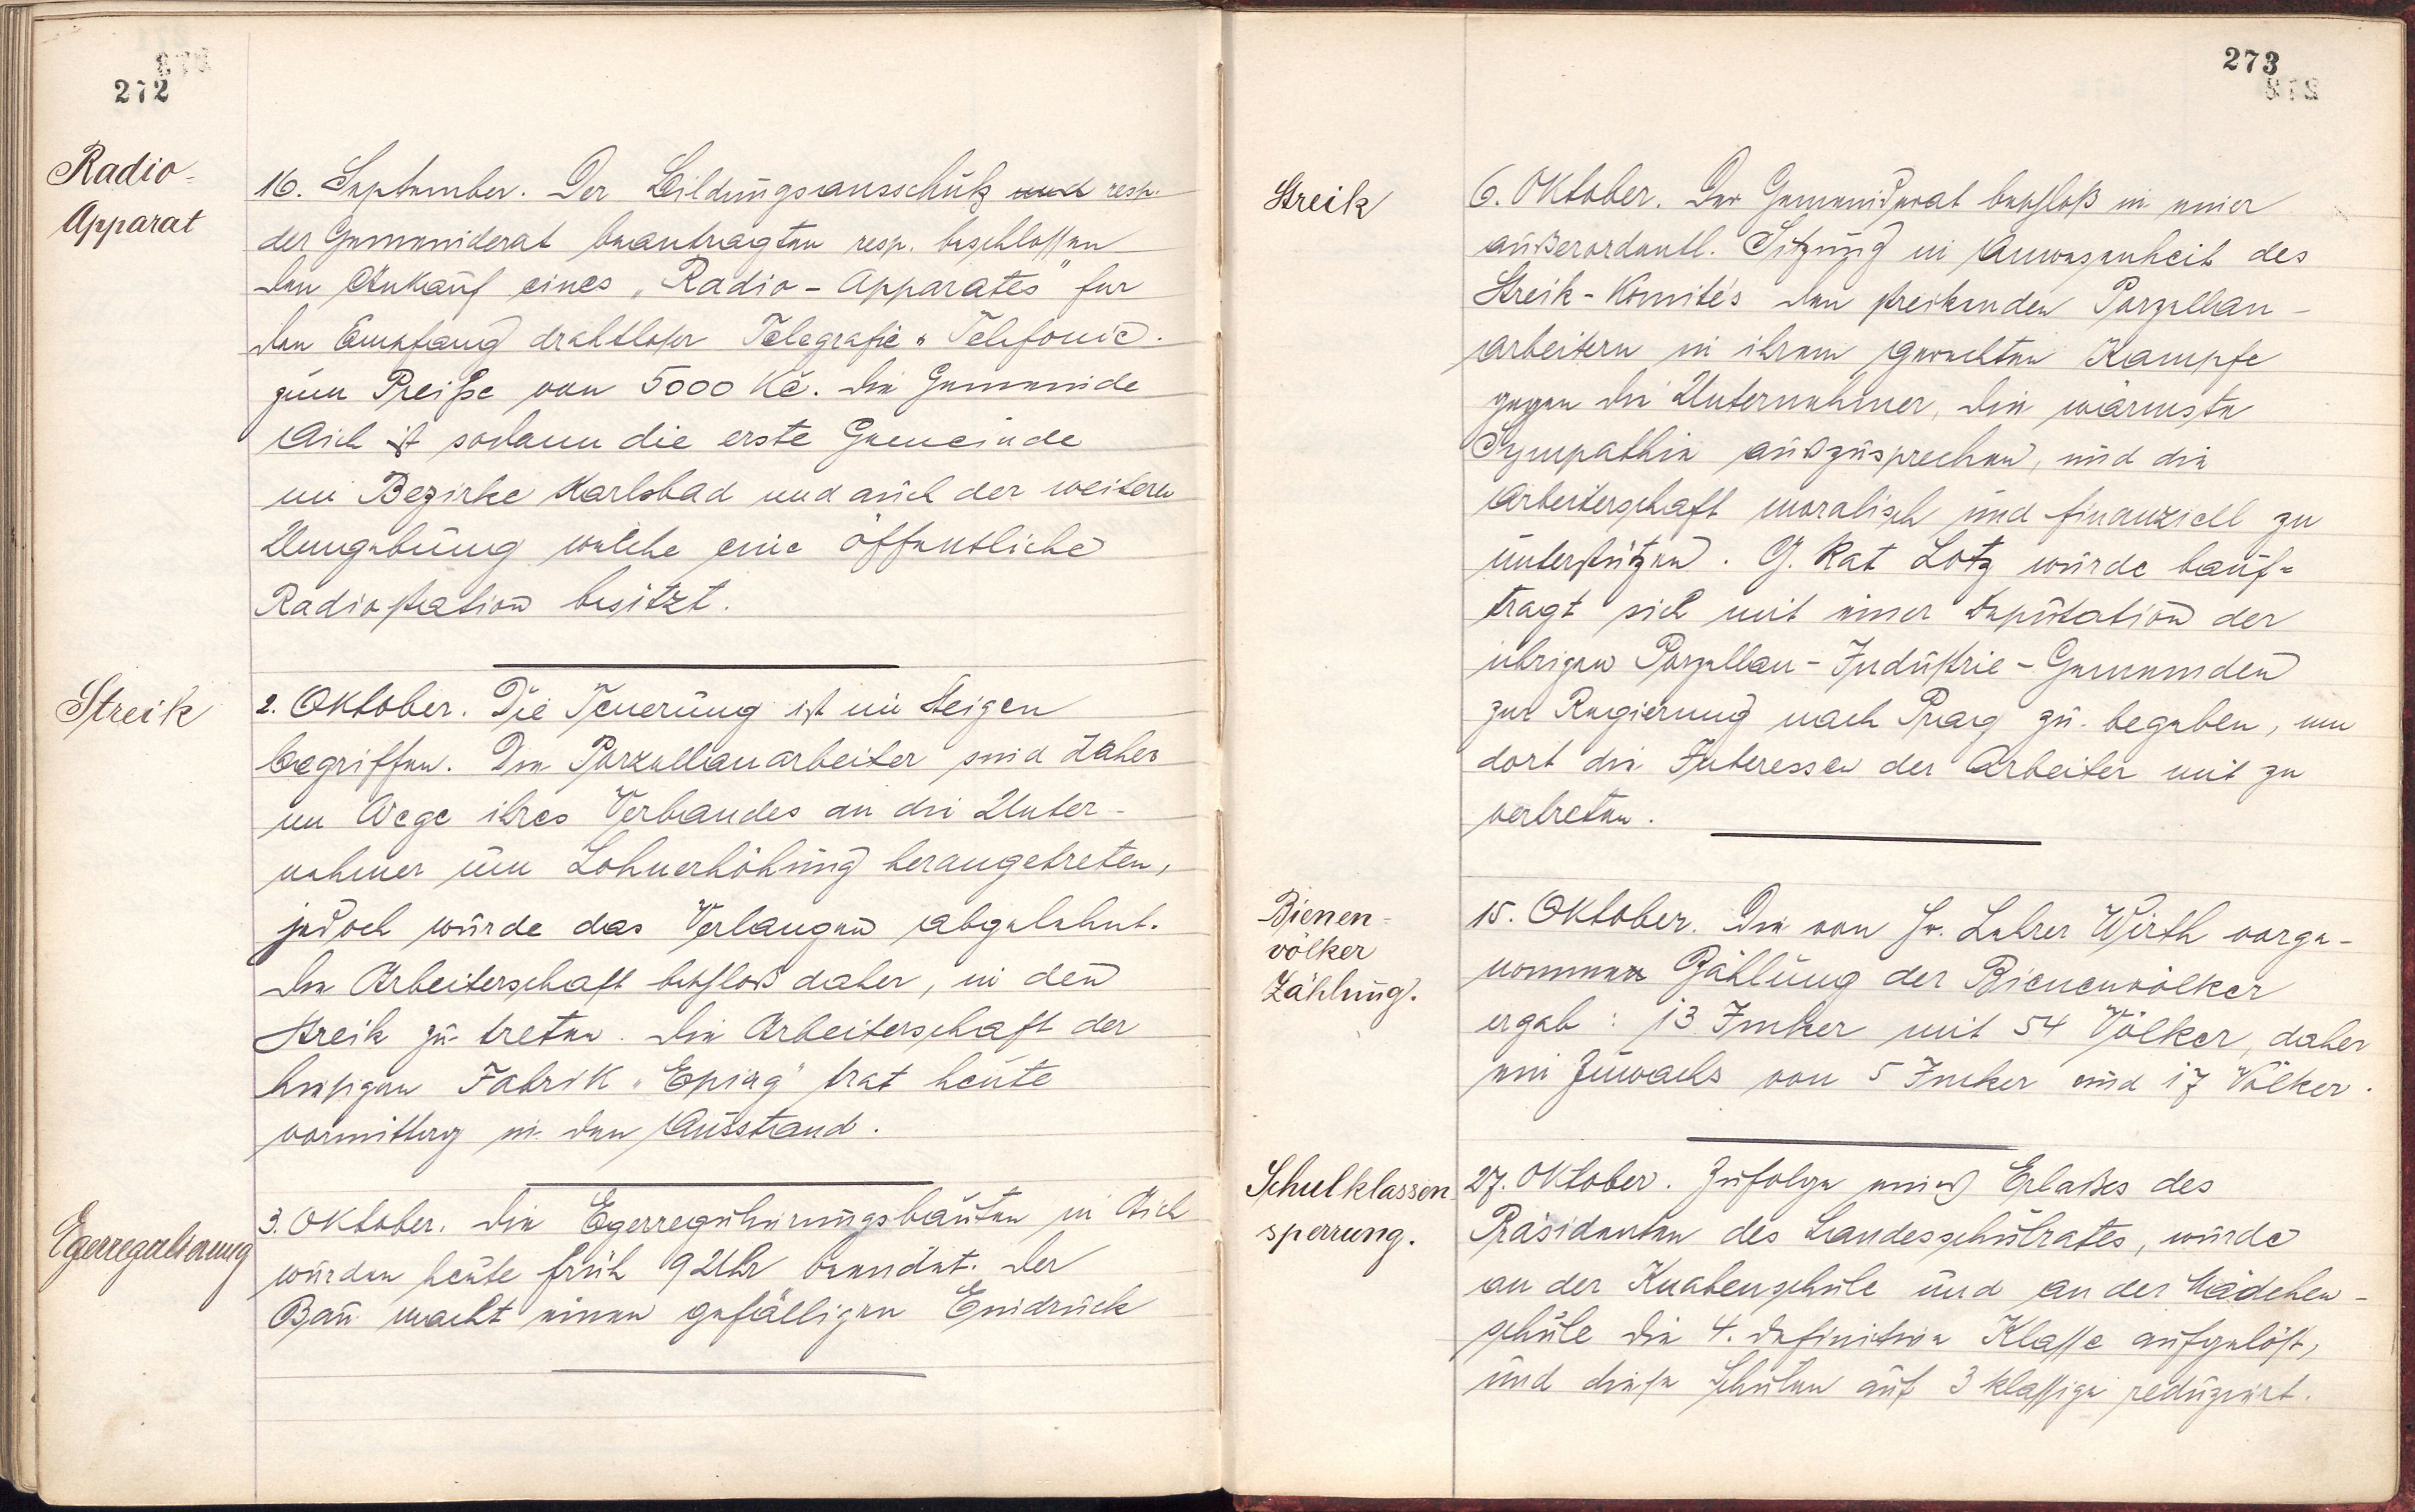 272
Radio-
Apparat
16. September. Der Bildungsausschuß und resp.
der Gemeinderat beantragten resp. beschlossen
den Ankauf eines „Radio-Apparates" für
den Empfang drahtloser Telegrafie & Telefonie.
zum Preise von 5000 Kč. Die Gemeinde
Aich ist sodann die erste Gemeinde
im Bezirke Karlsbad und auch der weiteren
Umgebung welche eine öffentliche
Radiostation besitzt.
Streik
2. Oktober. Die Teuerung ist im Steigen
begriffen. Die Porzellanarbeiter sind daher
im Wege ihres Verbandes an die Unter-
nehmer um Lohnerhöhung herangetreten,
jedoch wurde das Verlangen abgelehnt.
Die Arbeiterschaft beschloß daher, in den
Streik zu treten. Die Arbeiterschaft der
hiesigen Fabrik „Epiag" trat heute
vormittag in den Ausstand.
Egerregulierung
3. Oktober. Die Egerregulierungsbauten in Aich
wurden heute früh 9 Uhr beendet. Der
Bau macht einen gefälligen Eindruck
273
Streik
6. Oktober. Der Gemeinderat beschloß in einer
außerordentl. Sitzung in Anwesenheit des
Streik-Komité's den streikenden Porzellan-
arbeitern in ihrem gerechten Kampfe
gegen die Unternehmer, die wärmste
Sympathie auszusprechen, und die
Arbeiterschaft moralisch und finanziell zu
unterstützen. G. Rat Lotz wurde bauf-
tragt sich mit einer Deputation der
übrigen Porzellan-Industrie-Gemeinden
zur Regierung nach Prag zu begeben, um
dort die Interessen der Arbeiter mit zu
vertreten.
Bienen-
völker
Zählung.
15. Oktober. Die von Hr. Lehrer Wirth vorge-
nommene Zählung der Bienenvölker
ergab: 13 Imker mit 54 Völker, daher
ein Zuwachs von 5 Imker und 17 Völker.
Schulklassen
sperrung.
27. Oktober. Zufolge eines Erlaßes des
Präsidenten des Landesschulrates, wurde
an der Knabenschule und an der Mädchen-
schule die 4. definitive Klasse aufgelöst,
und diese Schulen auf 3 klassige reduziert.